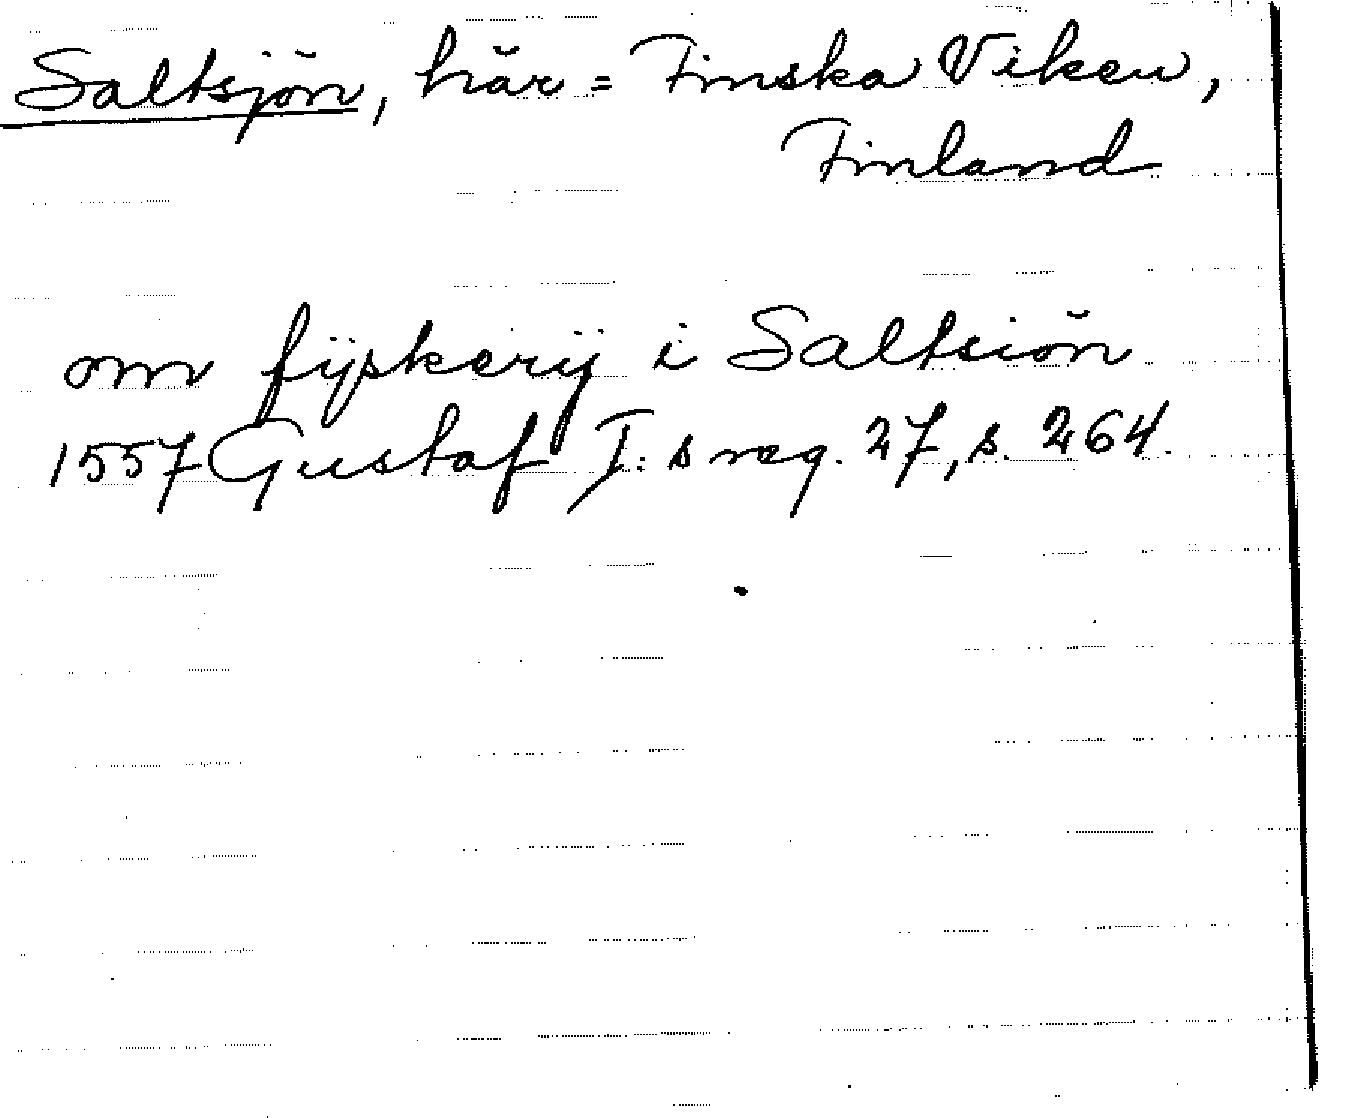 Saltsjön, här = Finska Viken,
Finland
om fijskerij i Saltsiön
1557 Gustaf I:s reg. 27, s. 264.